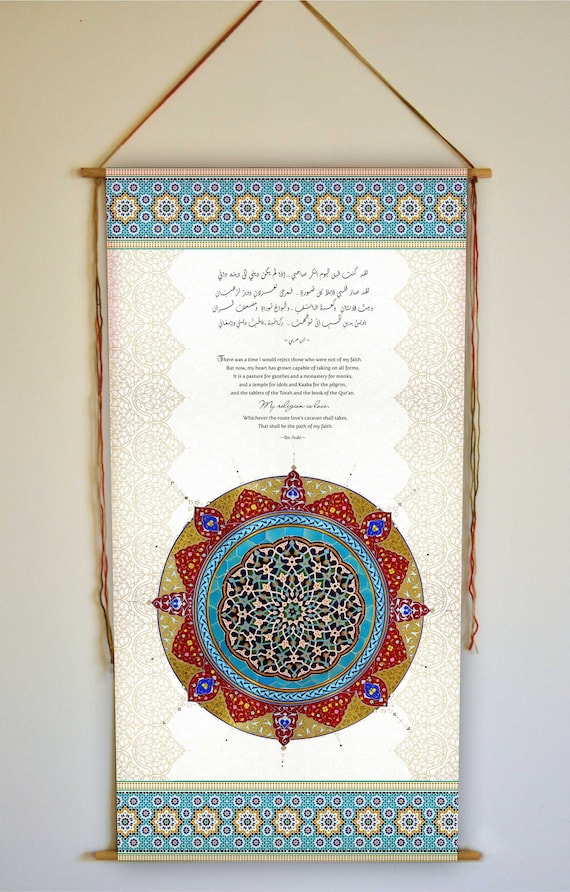 لقد كنت قبل اليوم أنكر صاحبي .. إذا لم يكن ديني إلى دينه داني
لقد صار قلبي قابلاً كل صورة .. فمرعى لغزلان ودير لرهبان
وبيت لأوثان وكعبة طائف .. وألواح توراة ومصحف قرآن
أدين بدين الحب أنى توجهت .. ركائبه .. فالحب ديني وإيماني
~ ابن عربي ~
There was a time I would reject those who were not of my faith.
But now, my heart has grown capable of taking on all forms.
It is a pasture for gazelles and a monastery for monks,
and a temple for idols and Kaaba for the pilgrim,
and the tablets of the Torah and the book of the Qur'an.
My religion is love.
Whichever the route love's caravan shall takes,
That shall be the path of my faith.
~ Ibn Arabi ~